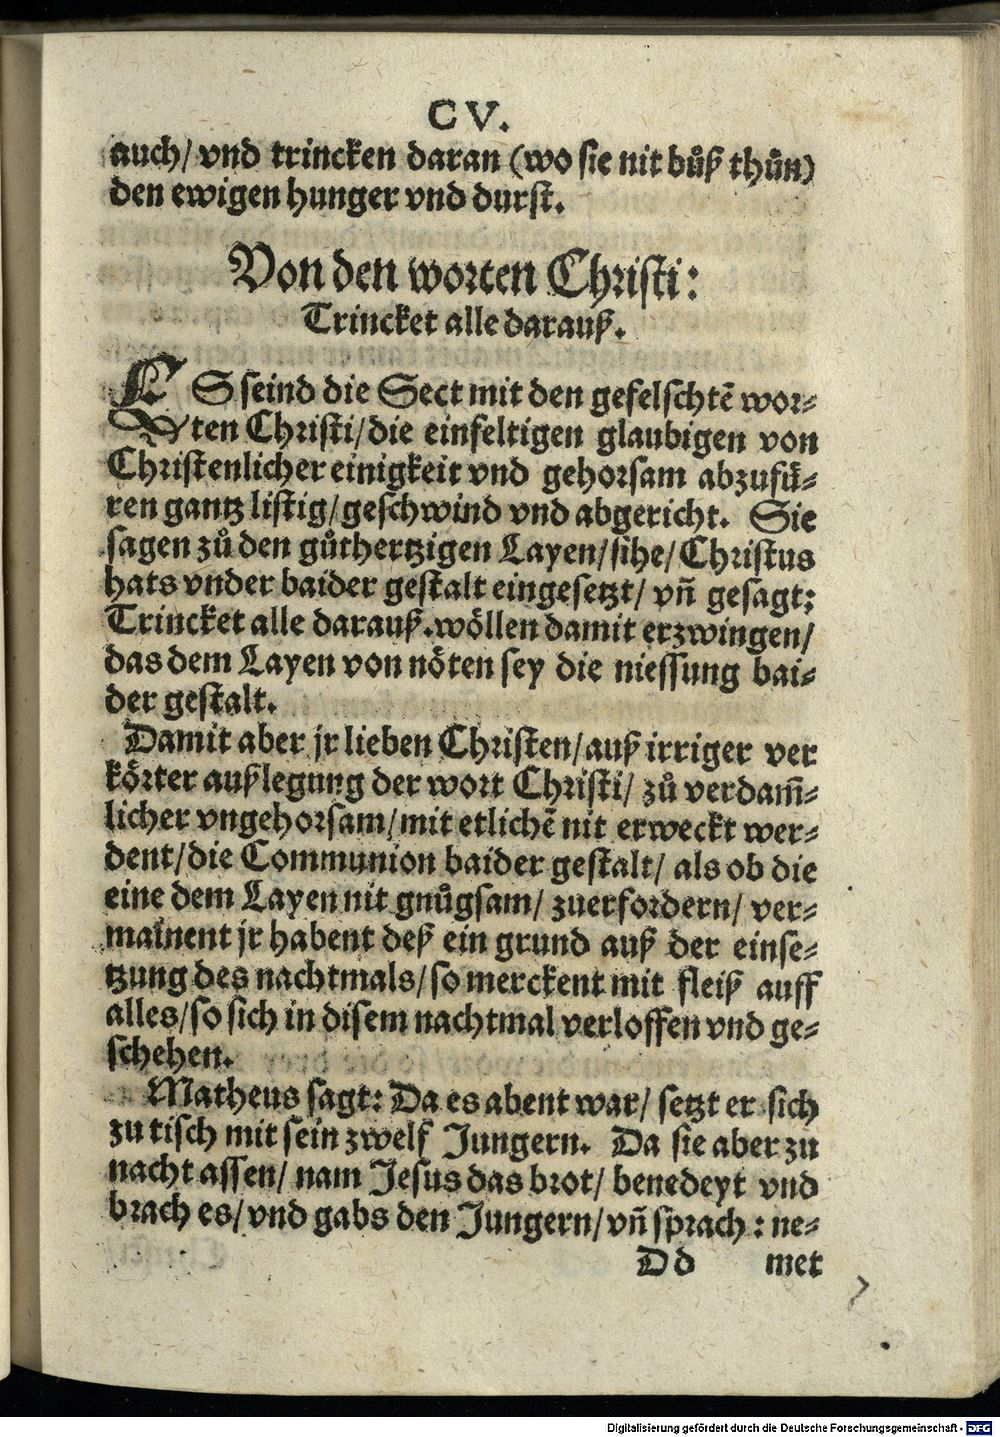 CV.
auch/ vnd trincken daran (wo sie nit bůß thůn)
den ewigen hunger vnd durst.
Von den worten Christi:
Trincket alle darauß.
ES seind die Sect mit den gefelschtē wor⸗
ten Christi/die einfeltigen glaubigen von
Christenlicher einigkeit vnd gehorsam abzufü⸗
ren gantz listig/geschwind vnd abgericht. Sie
sagen zů den gůthertzigen Layen/sihe/Christus
hats vnder baider gestalt eingesetzt/ vñ gesagt:
Trincket alle darauß.wöllen damit erzwingen/
das dem Layen von nöten sey die niessung bai⸗
der gestalt.
Damit aber jr lieben Christen/auß irriger ver
körter außlegung der wort Christi/ zů verdam̄⸗
licher vngehorsam/mit etlichē nit erweckt wer⸗
dent/die Communion baider gestalt/ als ob die
eine dem Layen nit gnůgsam/ zuerfordern/ ver⸗
mainent jr habent deß ein grund auß der einse⸗
tzung des nachtmals/so merckent mit fleiß auff
alles/so sich in disem nachtmal verloffen vnd ge⸗
schehen.
Matheus sagt: Da es abent war/ setzt er sich
zu tisch mit sein zwelf Jungern. Da sie aber zu
nacht assen/ nam Jesus das brot/ benedeyt vnd
brach es/vnd gabs den Jungern/vñ sprach: ne⸗
Dd met
Digitalisierung gefördert durch die Deutsche Forschungsgemeinschaft - DFG